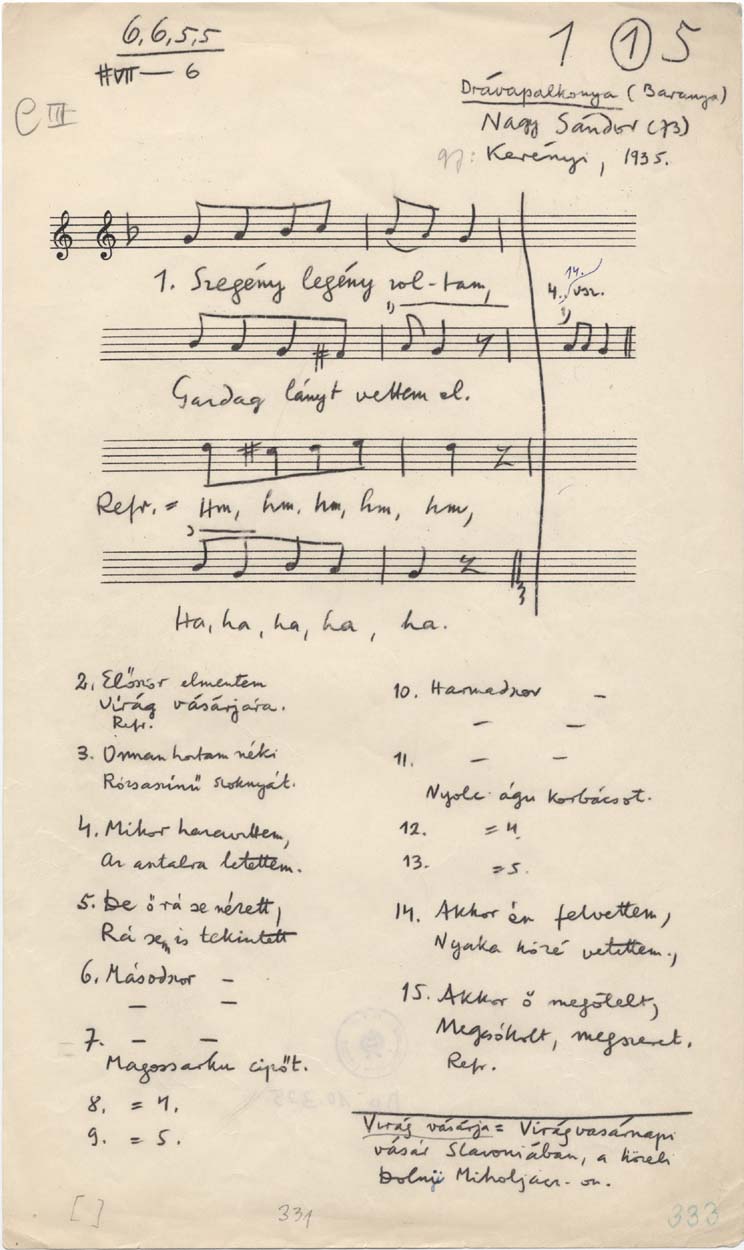 6,6,5,5
#VII — 6
1 ① 5
C III
Drávapalkonya (Baranya)
Nagy Sándor (73)
gy: Kerényi, 1935.
1. Szegény legény vol-tam,
14.
4. vsz.
1)
1)
Gazdag lányt vettem el.
Refr. = Hm, hm, hm, hm, hm,
Ha, ha, ha, ha, ha.
2. Először elmentem
Virág vásárjára.
Refr.
3. Onnan hoztam néki
Rózsaszínű szoknyát.
4. Mikor hazavittem,
Az asztalra letettem.
5. De ő rá se nézett,
Rá sem is tekintett
6. Másodszor –
– –
7. – –
Magossarku cipőt.
8. = 4.
9. = 5.
10. Harmadszor –
– –
11. – –
Nyolc águ korbácsot.
12. = 4.
13. = 5.
14. Akkor én felvettem,
Nyaka közé vetettem.,
15. Akkor ő megölelt,
Megcsókolt, megszeret.
Refr.
Virág vásárja = Virágvasárnapi
vásár Slavoniában, a közeli
Dolnji Miholjacz-on.
[ ]
331
333